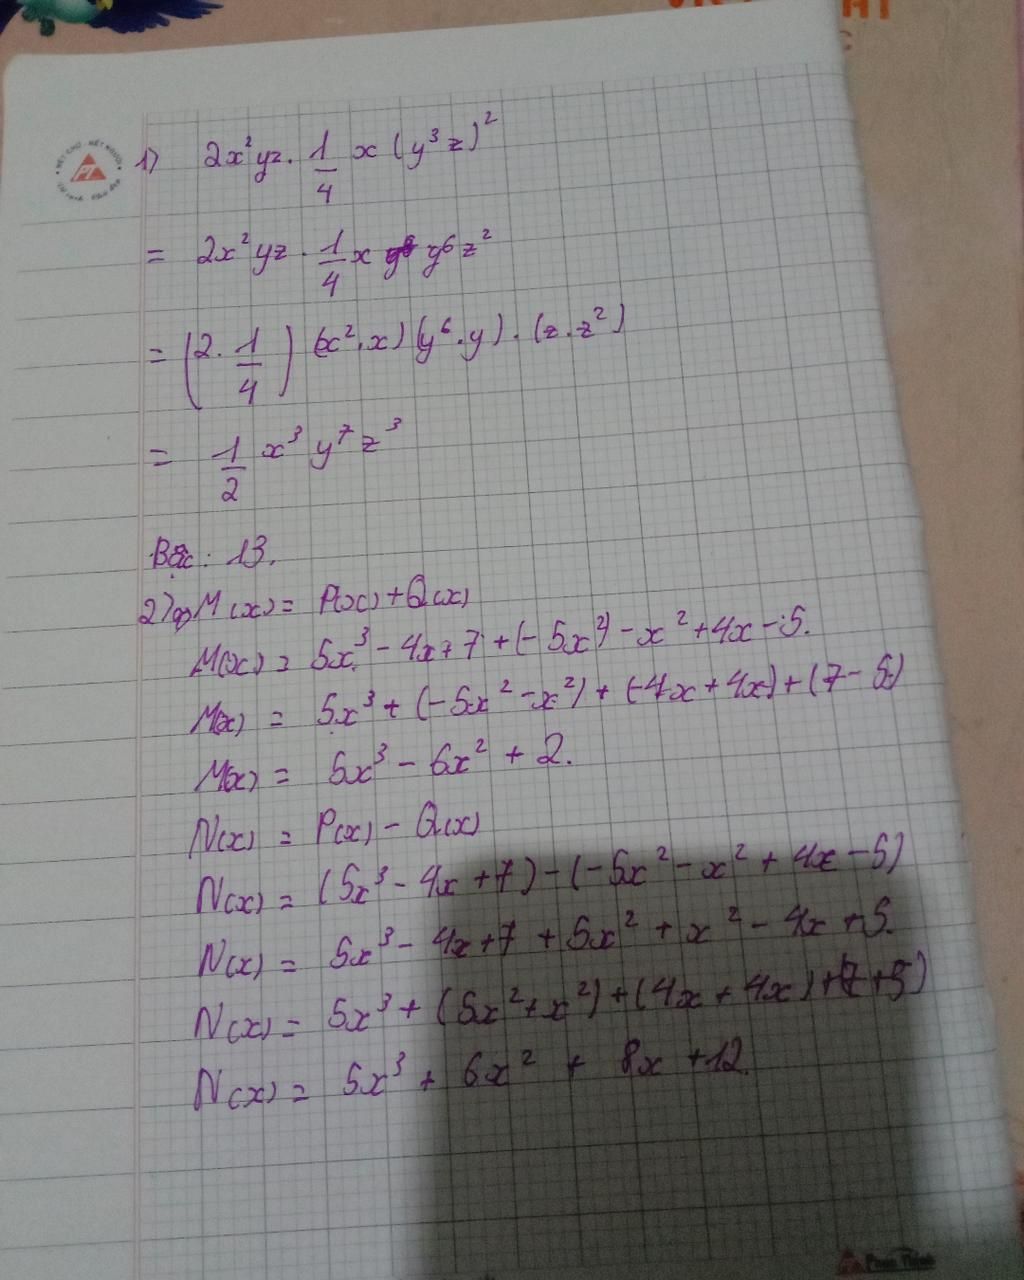 1) 2x²yz . 1/4 x (y³z)²
= 2x²yz . 1/4 x y⁶z²
= (2 . 1/4) (x².x) (y⁶.y) . (z.z²)
= 1/2 x³ y⁷ z³
Bậc : 13.
2) a) M(x) = P(x) + Q(x)
M(x) = 5x³ - 4x + 7 + (-5x²) - x² + 4x - 5.
M(x) = 5x³ + (-5x² - x²) + (-4x + 4x) + (7 - 5)
M(x) = 5x³ - 6x² + 2.
N(x) = P(x) - Q(x)
N(x) = (5x³ - 4x + 7) - (-5x² - x² + 4x - 5)
N(x) = 5x³ - 4x + 7 + 5x² + x² - 4x + 5.
N(x) = 5x³ + (5x² + x²) + (4x + 4x) + (7 + 5)
N(x) = 5x³ + 6x² + 8x + 12.